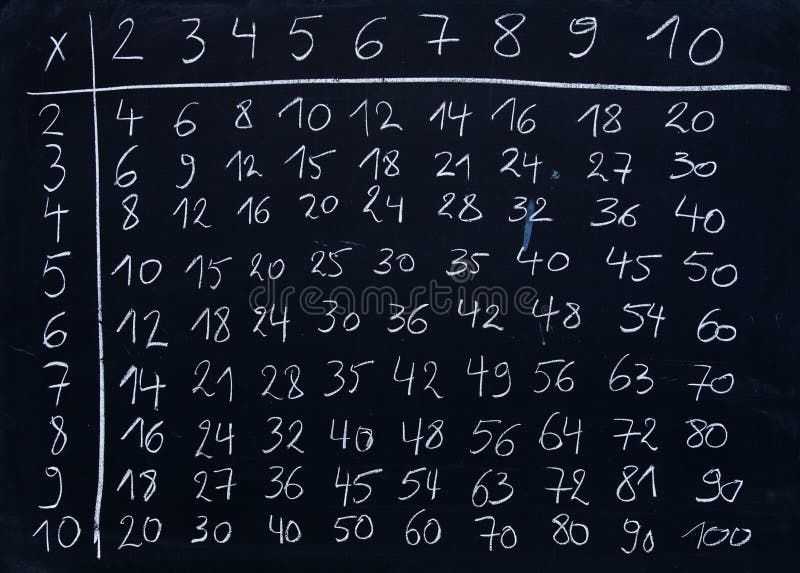 x 2 3 4 5 6 7 8 9 10
2 4 6 8 10 12 14 16 18 20
3 6 9 12 15 18 21 24 27 30
4 8 12 16 20 24 28 32 36 40
5 10 15 20 25 30 35 40 45 50
6 12 18 24 30 36 42 48 54 60
7 14 21 28 35 42 49 56 63 70
8 16 24 32 40 48 56 64 72 80
9 18 27 36 45 54 63 72 81 90
10 20 30 40 50 60 70 80 90 100
dreamstime